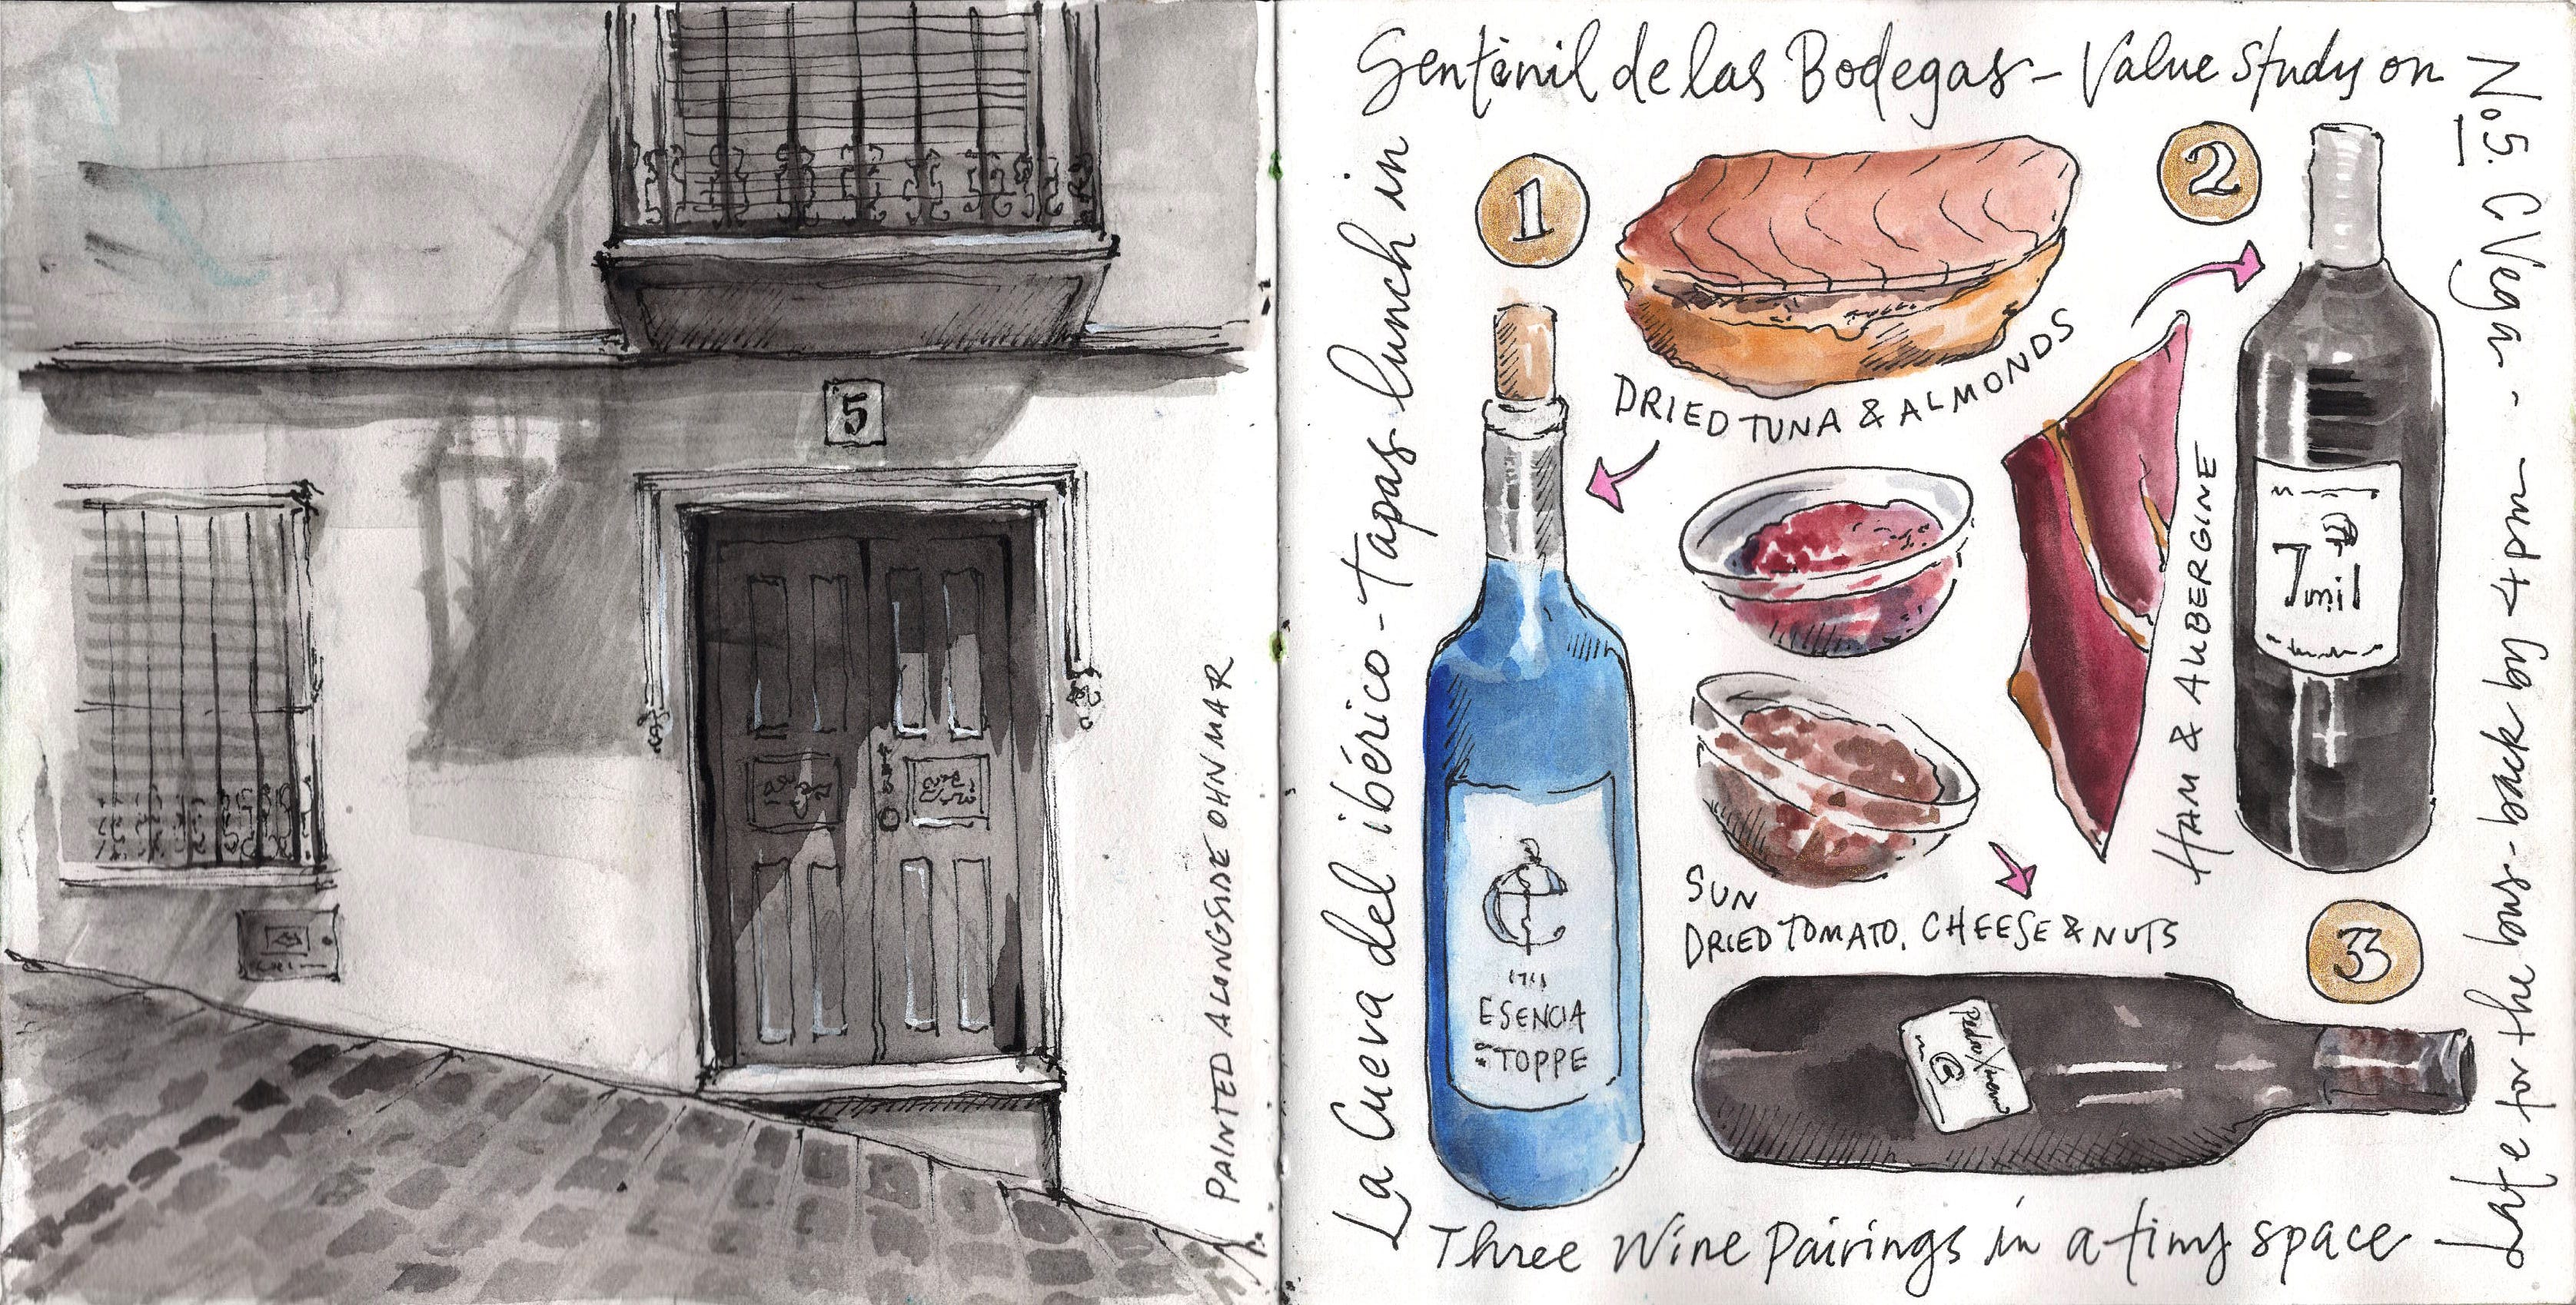 5
PAINTED ALONGSIDE OHN MAR
La Cueva del ibérico - Tapas lunch in
Sentinil de las Bodegas - Value Study on
No5. C Vega -
Late for the bus - back by 4pm -
Three Wine Pairings in a tiny space -
1
DRIED TUNA & ALMONDS
2
HAM & AUBERGINE
7
mil
SUN
DRIED TOMATO, CHEESE & NUTS
3
ESENCIA
TOPPE